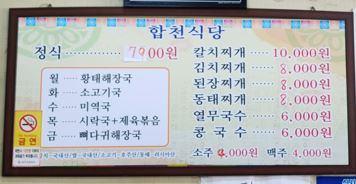 합천식당
정식 ····· 7900원
월 ····· 황태해장국
화 ····· 소고기국
수 ····· 미역국
목 ····· 시락국+제육볶음
금 ····· 뼈다귀해장국
갈치찌개 ····· 10,000원
김치찌개 ····· 8,000원
된장찌개 ····· 8,000원
동태찌개 ····· 8,000원
열무국수 ····· 6,000원
콩국수 ····· 6,000원
소주 4,000원 맥주 4,000원
금연
김치·국내산/쌀·국내산/소고기·호주산/동태·러시아산